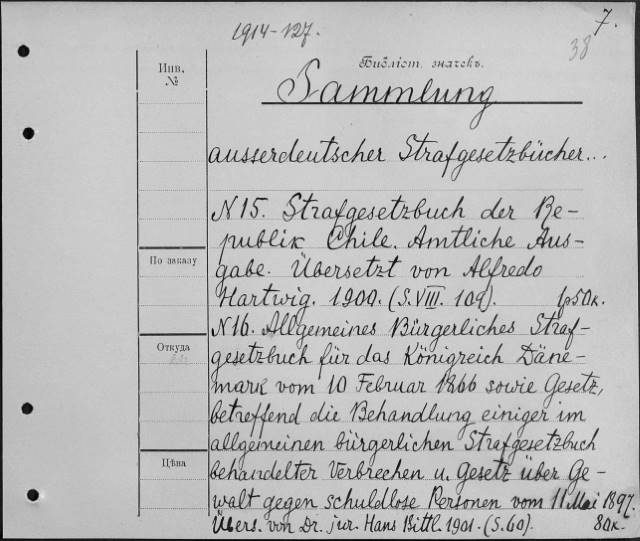 7.
1914-127.
38
Библіот. значекъ.
Инв.
№
Sammlung
ausserdeutscher Strafgesetzbücher...
N 15. Strafgesetzbuch der Re-
publik Chile. Amtliche Aus-
gabe. Übersetzt von Alfredo
По заказу
Hartwig. 1900. (S. VIII. 109). 1р50к.
N 16. Allgemeines Bürgerliches Straf-
Откуда
gesetzbuch für das Königreich Däne-
mark vom 10 Februar 1866 sowie Gesetz,
betreffend die Behandlung einiger im
allgemeinen bürgerlichen Strafgesetzbuch
Цѣна
behandelter Verbrechen u. Gesetz über Ge-
walt gegen schuldlose Personen vom 11 Mai 1897.
Übers. von Dr. jur. Hans Bittl. 1901. (S. 60). 80к.